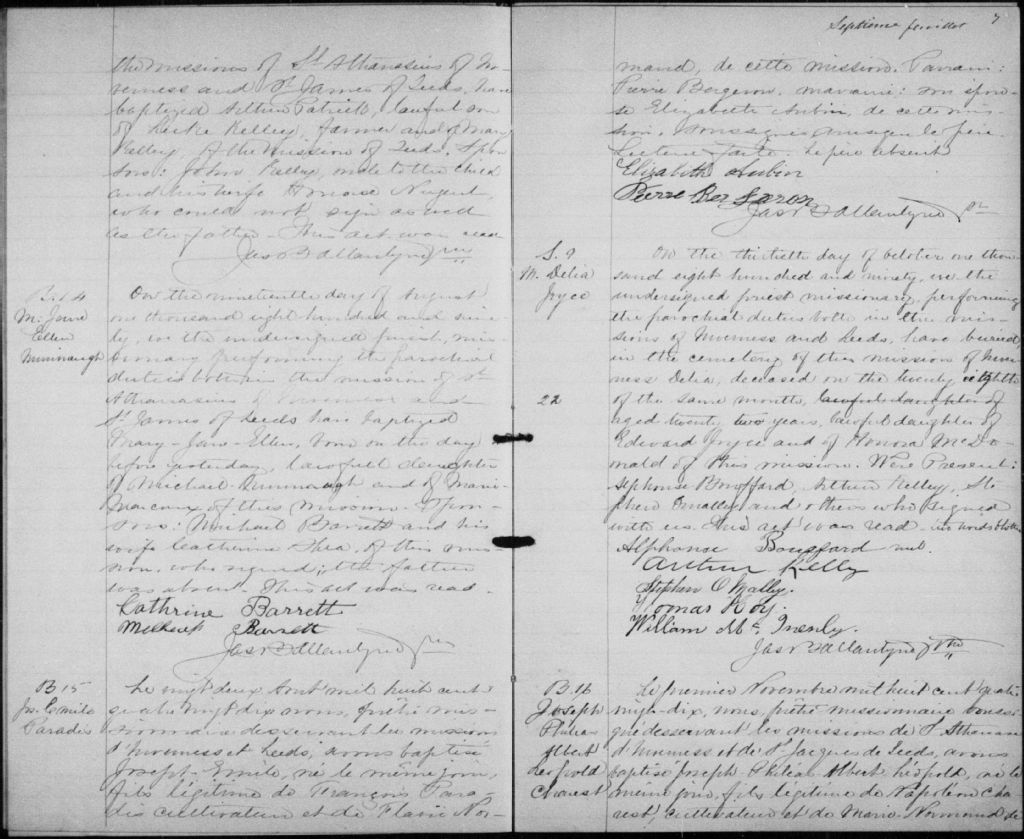 the missions of St Athanasius of In-
verness and St James of Leeds, have
baptized Arthur Patrick, lawful son
of Luke Kelley, farmer and of Mary
Kelley, of the mission of Leeds. Spon
sors: John Kelley, uncle to the child
and his wife Honora Nugent
who could not sign as well
as the father. This act was read
Jas Ballantyne ptr
B. 14
M. Jane
Ellen
Mimnaugh
On the nineteenth day of August
one thousand eight hundred and nine-
ty, we the undersigned priest, mis-
sionary performing the parochial
duties both in the mission of St
Athanasius of Inverness and
St James of Leeds have baptized
Mary-Jane-Ellen, born on the day
before yesterday, lawfull daughter
of Michael Mimnaugh and of Marie
of this mission. Spon-
sors: Michael Barrett and his
wife Catherine Shea, of this mis-
sion, who signed; the father
was absent. This act was read.
Cathrine Barrett
Barrett
Jas Ballantyne ptr
B 15
Jos. Emile
Paradis
Le vingt deux Août mil huit cent
quatre vingt dix nous, prêtre mis-
sionnaire desservant les missions
d'Inverness et Leeds, avons baptisé
Joseph-Emile, né le même jour,
fils légitime de François Para-
dis cultivateur et de Flavie Nor-
Septième feuillet
7
mand, de cette mission. Parrain:
Pierre Bergeron. marraine: son épou-
se Elizabette Aubin, de cette mis-
sion, soussignés
Lecture faite. Le père absent
Elizabeth Aubin
Pierre Bergeron
Jas Ballantyne ptr
S. 9
M. Delia
Joyce
22
On the thirtieth day of October one thou
sand eight hundred and ninety, we the
undersigned priest missionary, performing
the parochial duties both in the mis-
sions of Inverness and Leeds, have buried
in the cemetery of this mission of Inver
ness Delia, deceased on the twenty eighth
of the same month, lawful daughter of
aged twenty two years, lawful daughter of
Edward Joyce and of Honora McDo-
nald of this mission. Were Present:
Alphonse Bouffard, Arthur Kelley, Ste
phen Omalley and others who signed
with us. This act was read. words
Alphonse Bouffard
Arthur Kelly
Stephen O Mally.
Thomas Roy.
William Mc
Jas Ballantyne Ptre
B. 16
Joseph
Philias
Albert
Léopold
Charest
Le premier Novembre mil huit cent quatre
vingt-dix, nous, prêtre missionnaire soussi
gné desservant les missions de St Athanase
d'Inverness et de St Jacques de Leeds, avons
baptisé Joseph Philias Albert Léopold, né le
même jour, fils légitime de Napoléon Cha
rest, cultivateur et de Marie Normand de